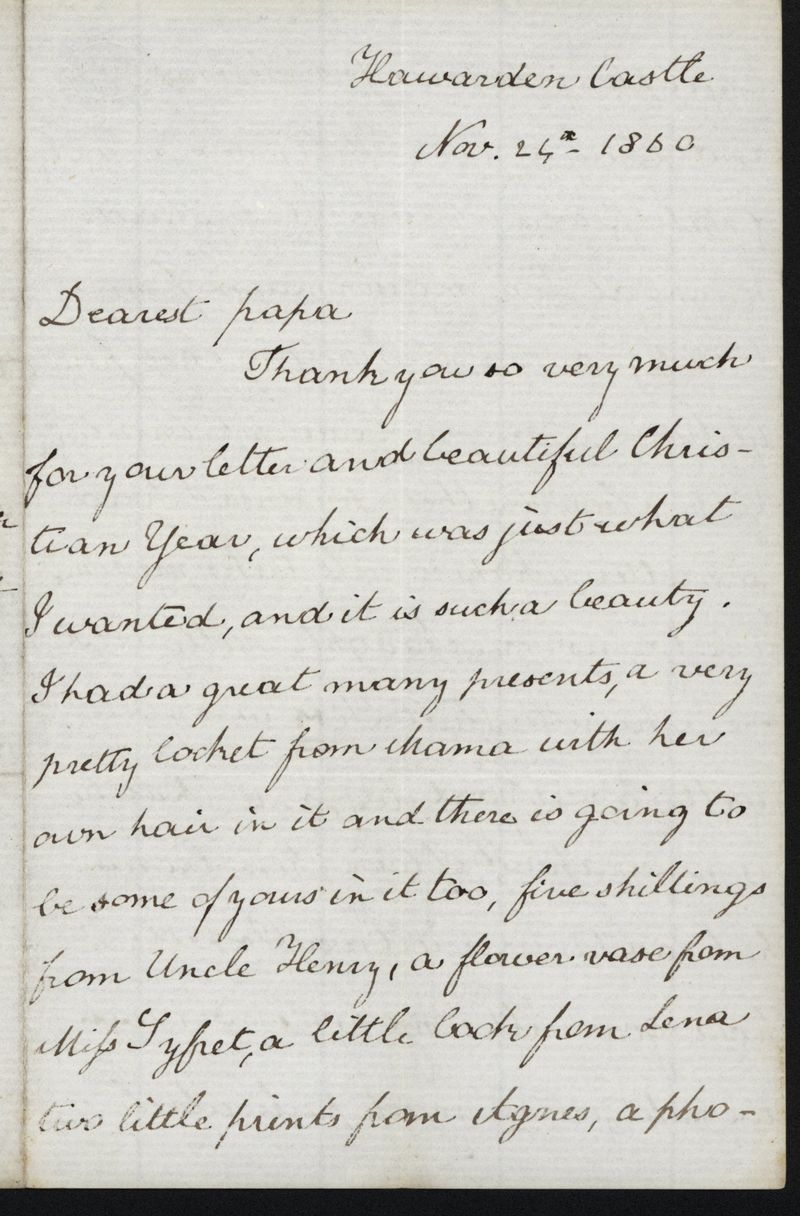 Hawarden Castle
Nov. 24th 1860
Dearest papa
Thank you so very much
for your letter and beautiful Chris-
tian Year, which was just what
I wanted, and it is such a beauty.
I had a great many presents, a very
pretty locket from Mama with her
own hair in it and there is going to
be some of yours in it too, five shillings
from Uncle Henry, a flower vase from
Miss Syfret, a little lock from Lena
two little prints from Agnes, a pho-